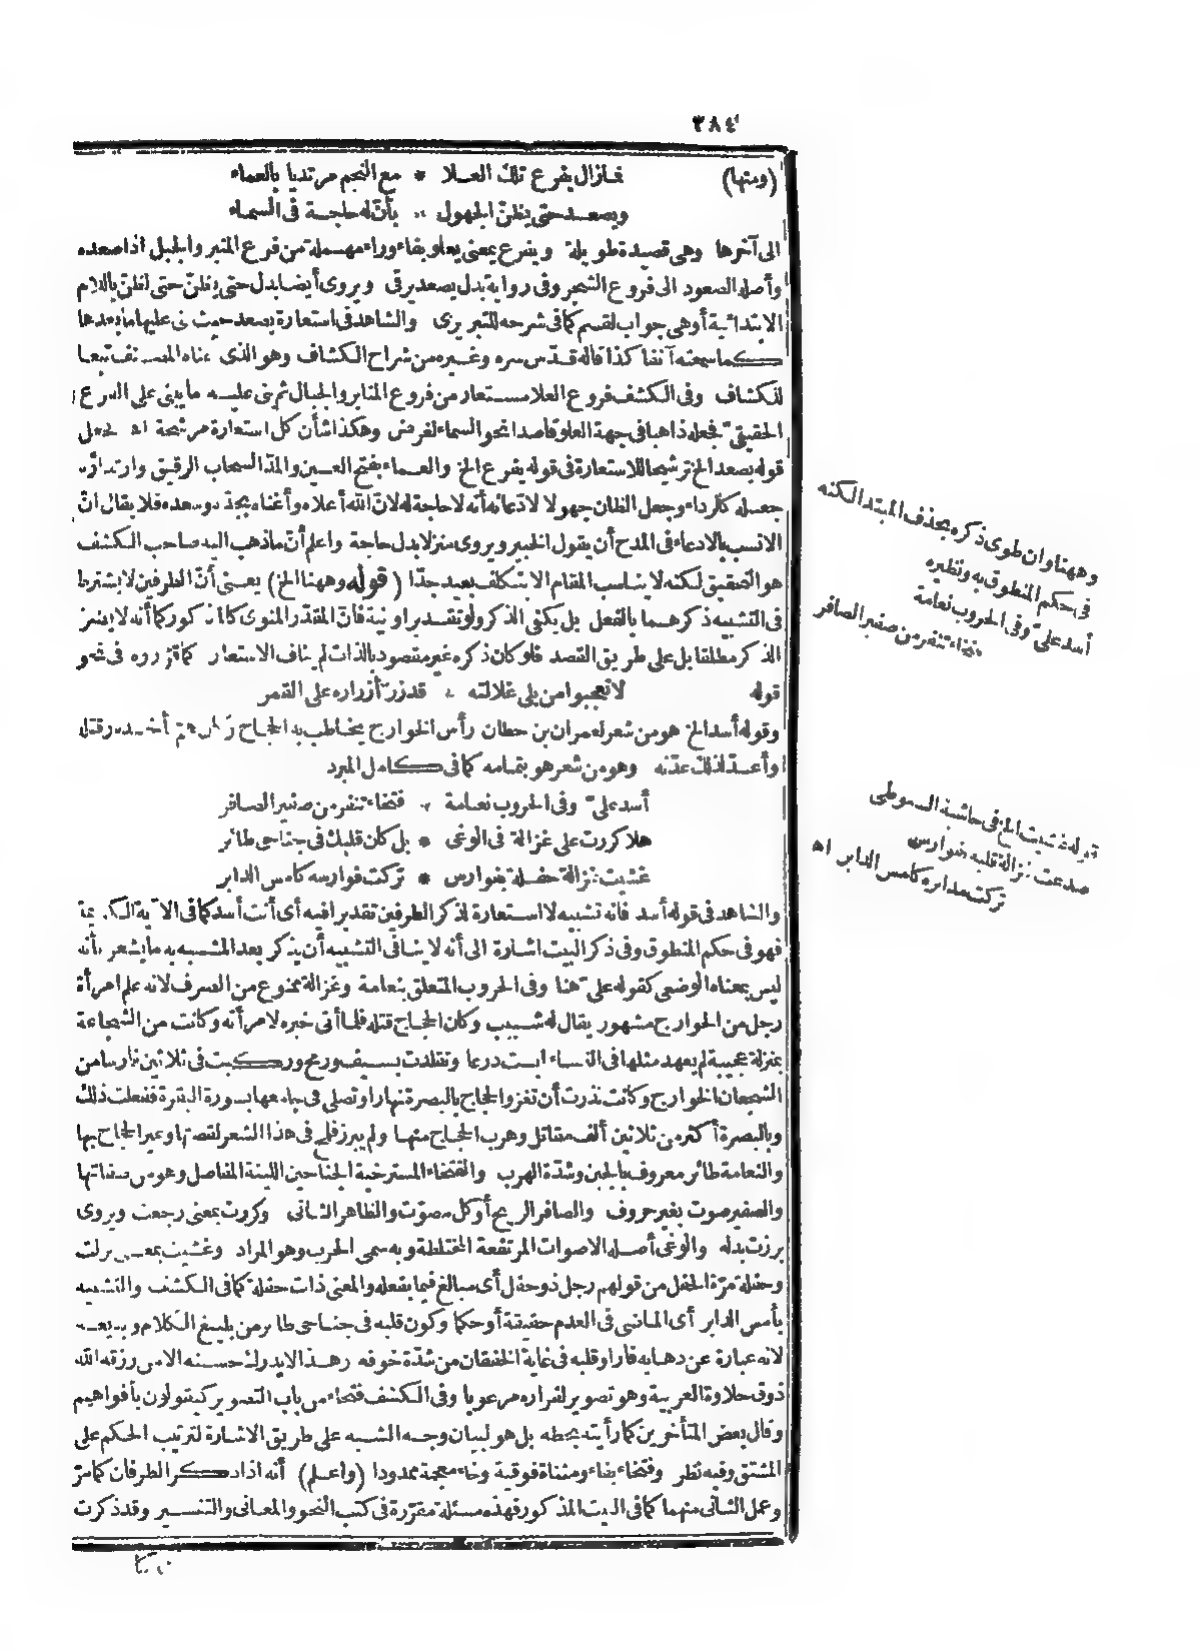 ٣٨٤
(ومنها) فمازال يفرع تلك العلا * مع النجم مرتديا بالعماء
ويصعد حتى يظنّ الجهول * بأنّ له حاجة فى السماء
الى آخرها وهى قصيدة طويلة ويفرع بمعنى يعلو بفاء وراء مهملة من فرع المنبر والجبل اذا صعده
وأصله الصعود الى فروع الشجر وفى رواية بدل يصعد يرقى ويروى أيضا بدل حتى يظنّ حتى لظنّ باللام
الابتدائية أو هى جواب لقسم كما فى شرحه للتبريزى والشاهد فى استعارة يصعد حيث بنى عليها ما بعدها
كما سمعته آنفا كذا قاله قدّس سره وغيره من شراح الكشاف وهو الذى عناه المصنف تبعا
للكشاف وفى الكشف فروع العلا مستعار من فروع المنابر والجبال ثم بنى عليه ما يبنى على الفرع
الحقيقىّ فجعله ذاهبا فى جهة العلو قاصدا نحو السماء لغرض وهكذا شأن كل استعارة مرشحة
قوله يصعد الخ ترشيحا للاستعارة فى قوله يفرع الخ والعماء بفتح العين والمدّ السحاب الرقيق وارتداؤه
جعله كالرداء وجعل الظان جهولا لادّعائه أنه لا حاجة له لانّ الله أعلاه وأغناه بجدّه وسعده فلا يقال انّ
الانسب بالادعاء فى المدح أن يقول الخبير ويروى منزلا بدل حاجة واعلم أنّ ما ذهب اليه صاحب الكشف
هو التحقيق لكنه لا يناسب المقام الا بتكلف بعيد جدّا (قوله وههنا الخ) يعنى أنّ الطرفين لا يشترط
فى التشبيه ذكرهما بالفعل بل يكفى الذكر ولو تقديرا ونية فانّ المقدّر المنوى كالمذكور كما أنه لا يضر
الذكر مطلقا بل على طريق القصد فلو كان ذكره غير مقصود بالذات لم يناف الاستعارة كما فى نحو
قوله لا تعجبوا من بلى غلالته * قد زرّ أزراره على القمر
وقوله أسد الخ هو من شعر لعمران بن حطان رأس الخوارج يخاطب به الحجاج أخذه وقتله
وأعدّ لذلك عدّته وهو من شعر هو بتمامه كما فى كامل المبرد
أسد علىّ وفى الحروب نعامة * فتخاء تنفر من صفير الصافر
هلا كررت على غزالة فى الوغى * بل كان قلبك فى جناحى طائر
غشيت غزالة حفلة بفوارس * تركت فوارسه كأمس الدابر
والشاهد فى قوله أسد فانه تشبيه لا استعارة لذكر الطرفين تقديرا فيه أى أنت أسد كما فى الآية الكريمة
فهو فى حكم المنطوق وفى ذكر البيت اشارة الى أنه لا ينافى التشبيه أن يذكر بعد المشبه به ما يشعر بأنه
ليس بمعناه الوضعى كقوله علىّ هنا وفى الحروب المتعلق بنعامة وغزالة ممنوع من الصرف لانه علم امرأة
رجل من الخوارج مشهور يقال له شبيب وكان الحجاج قتله فلما أتى خبره لامرأته وكانت من الشجاعة
بمنزلة عجيبة لم يعهد مثلها فى النساء لبست درعا وتقلدت بسيف ورمح وركبت فى ثلاثين فارسا من
الشجعان الخوارج وكانت نذرت أن تغزو الحجاج بالبصرة نهارا وتصلى فى جامعها بسورة البقرة ففعلت ذلك
وبالبصرة أكثر من ثلاثين ألف مقاتل وهرب الحجاج منها ولم يبرز فلمح فى هذا الشعر لقصتها وعير الحجاج بها
والنعامة طائر معروف بالجبن وشدّة الهرب والفتخاء المسترخية الجناحين اللينة المفاصل وهو من صفاتها
والصفير صوت بغير حروف والصافر الريح أو كل مصوّت والظاهر الثانى وكررت بمعنى رجعت ويروى
برزت بدله والوغى أصله الاصوات المرتفعة المختلطة وبه سمى الحرب وهو المراد وغشيت بمعنى نزلت
وحفلة مرّة الحفل من قولهم رجل ذو حفل أى مبالغ فيما يفعله والمعنى ذات حفلة كما فى الكشف والتشبيه
بأمس الدابر أى الماضى فى العدم حقيقة أو حكما وكون قلبه فى جناحى طائر من بليغ الكلام وبديعه
لانه عبارة عن ذهابه فارا وقلبه فى غاية الخفقان من شدّة خوفه وهذا لا يدرك حسنه الا من رزقه الله
ذوق حلاوة العربية وهو تصوير لفراره مرعوبا وفى الكشف فتخاء من باب التصوير كيقولون بأفواههم
وقال بعض المتأخرين كما رأيته بخطه بل هو لبيان وجه الشبه على طريق الاشارة لترتيب الحكم على
المشتق وفيه نظر وفتخاء بفاء ومثناة فوقية وخاء معجمة ممدودا (واعلم) أنه اذا ذكر الطرفان كما مرّ
وعمل الثانى منهما كما فى البيت المذكور فهذه مسئلة مقرّرة فى كتب النحو والمعانى والتفسير وقد ذكرت
وههنا وان طوى ذكره بحذف المبتدا لكنه
فى حكم المنطوق به ونظيره
أسد علىّ وفى الحروب نعامة
فتخاء تنفر من صفير الصافر
قوله غشيت الخ فى حاشية السيوطى
صدعت غزالة قلبه بفوارس
تركت مدابره كأمس الدابر اه